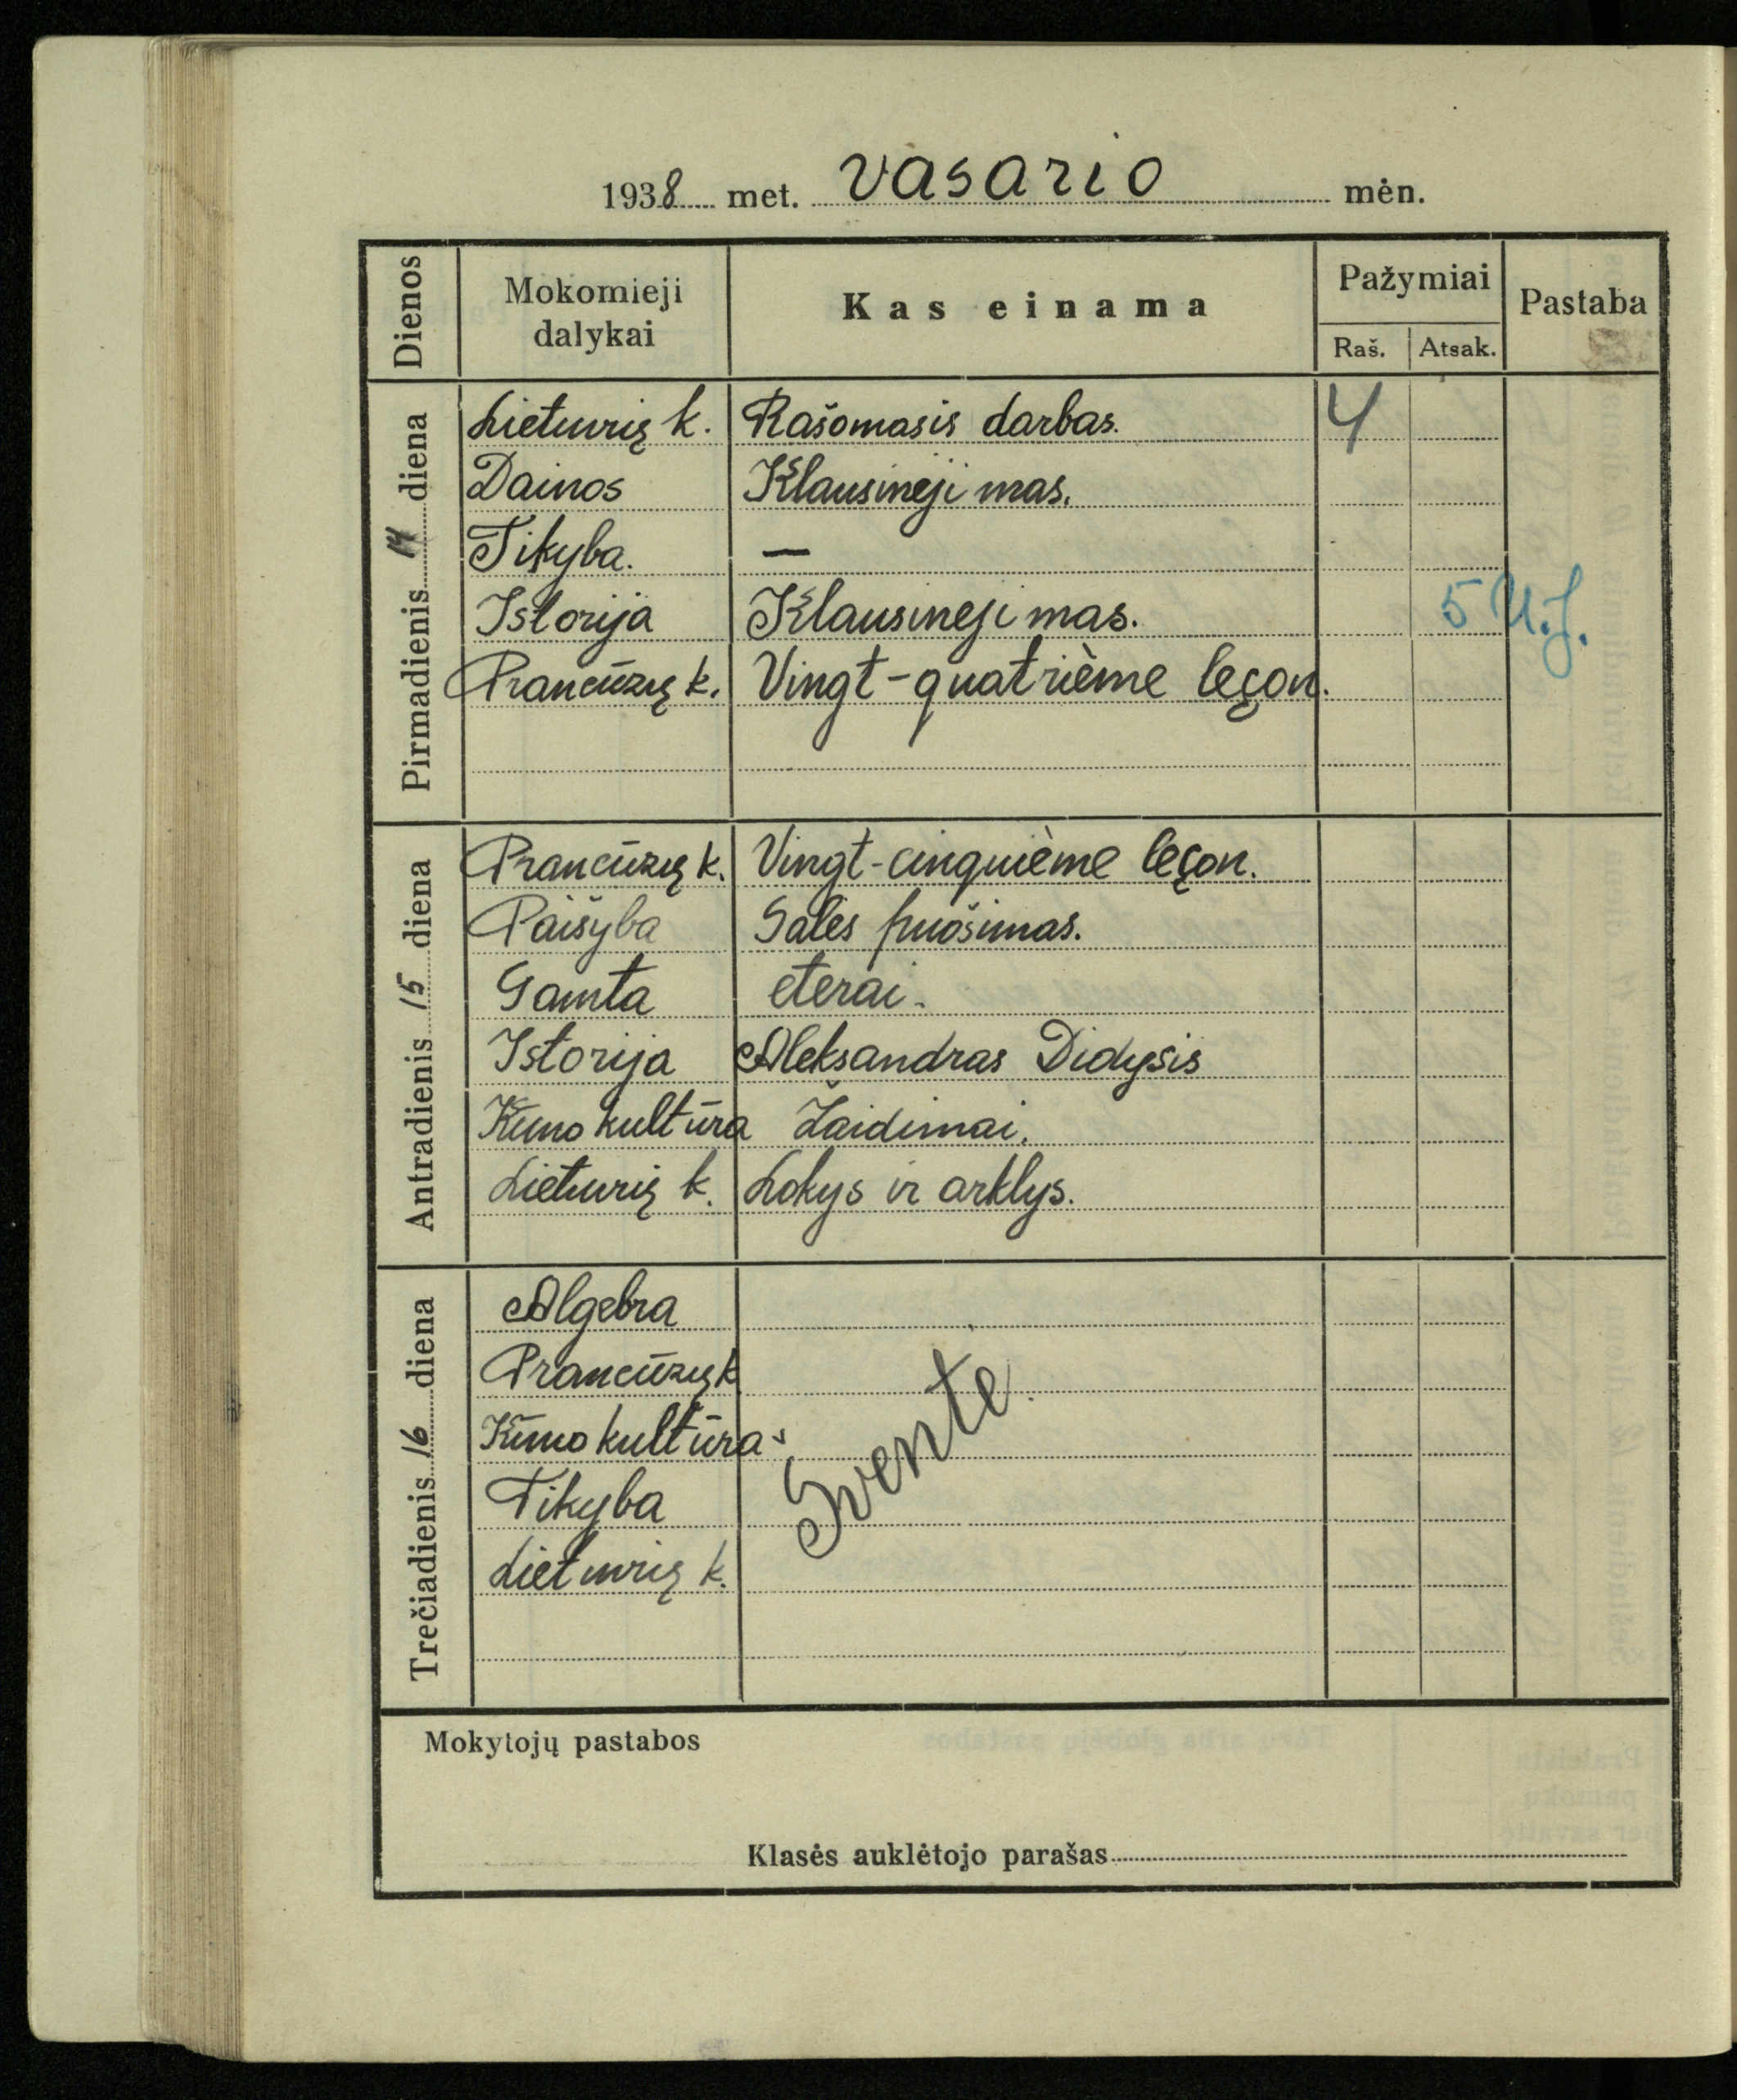 1938 met. vasario mėn.
Dienos Mokomieji dalykai Kas einama Pažymiai Raš. Atsak. Pastaba
Pirmadienis 14 diena
Lietuvių k. Rašomasis darbas. 4
Dainos Klausinėjimas.
Tikyba. —
Istorija Klausinėjimas. 5 U.J.
Prancūzų k. Vingt-quatrième leçon.
Antradienis 15 diena
Prancūzų k. Vingt-cinquième leçon.
Paišyba Salės puošimas.
Gamta eterai.
Istorija Aleksandras Didysis
Kūno kultūra Žaidimai.
Lietuvių k. Lokys ir arklys.
Trečiadienis 16 diena
Algebra
Prancūzų k
Kūno kultūra
Tikyba
Lietuvių k.
Šventė.
Mokytojų pastabos
Klasės auklėtojo parašas